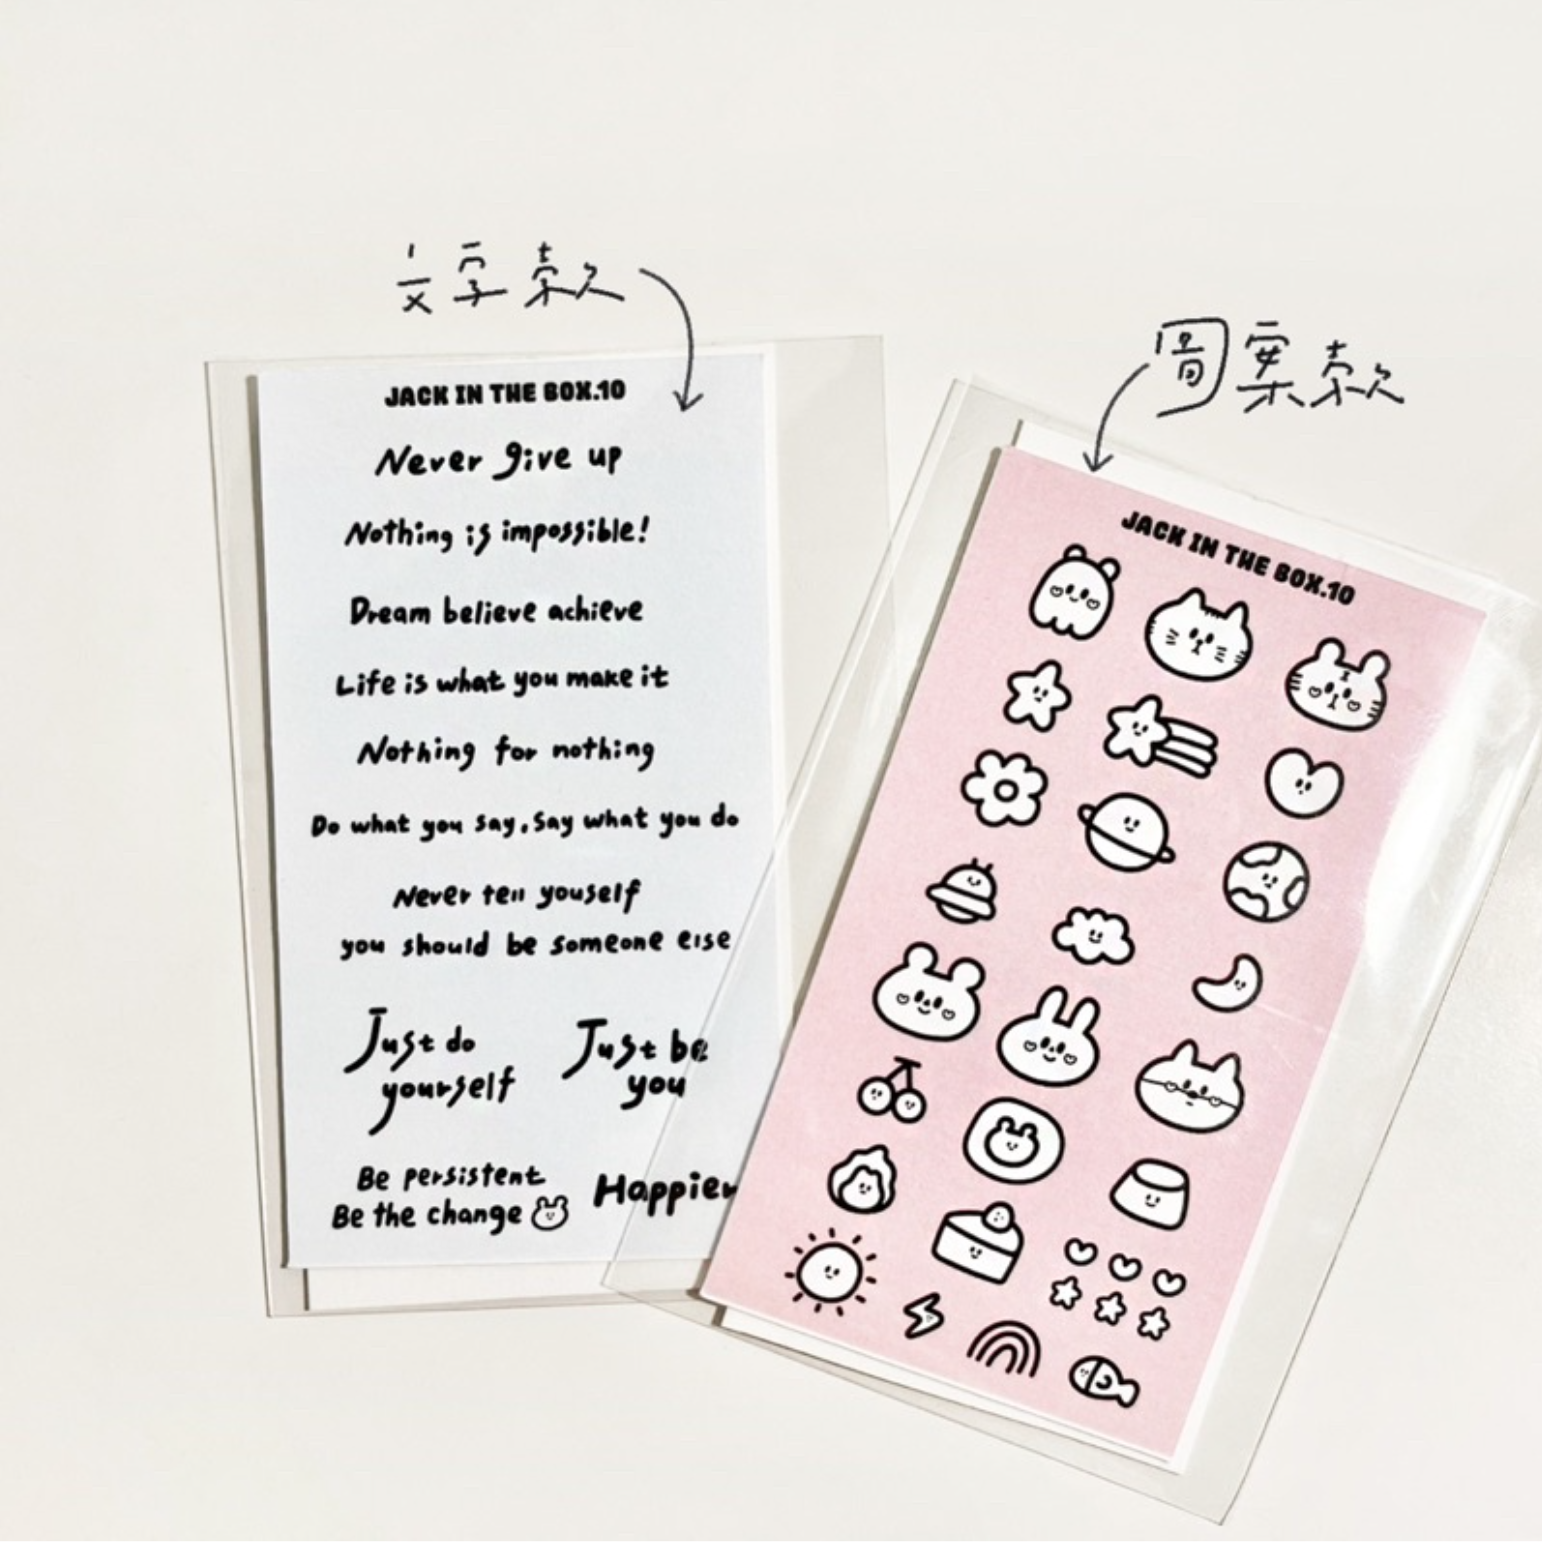 文字款
JACK IN THE BOX.10
Never give up
Nothing is impossible!
Dream believe achieve
Life is what you make it
Nothing for nothing
Do what you say, Say what you do
Never tell youself
you should be someone else
Just do
yourself
Just be
you
Be persistent
Be the change
Happier
圖案款
JACK IN THE BOX.10